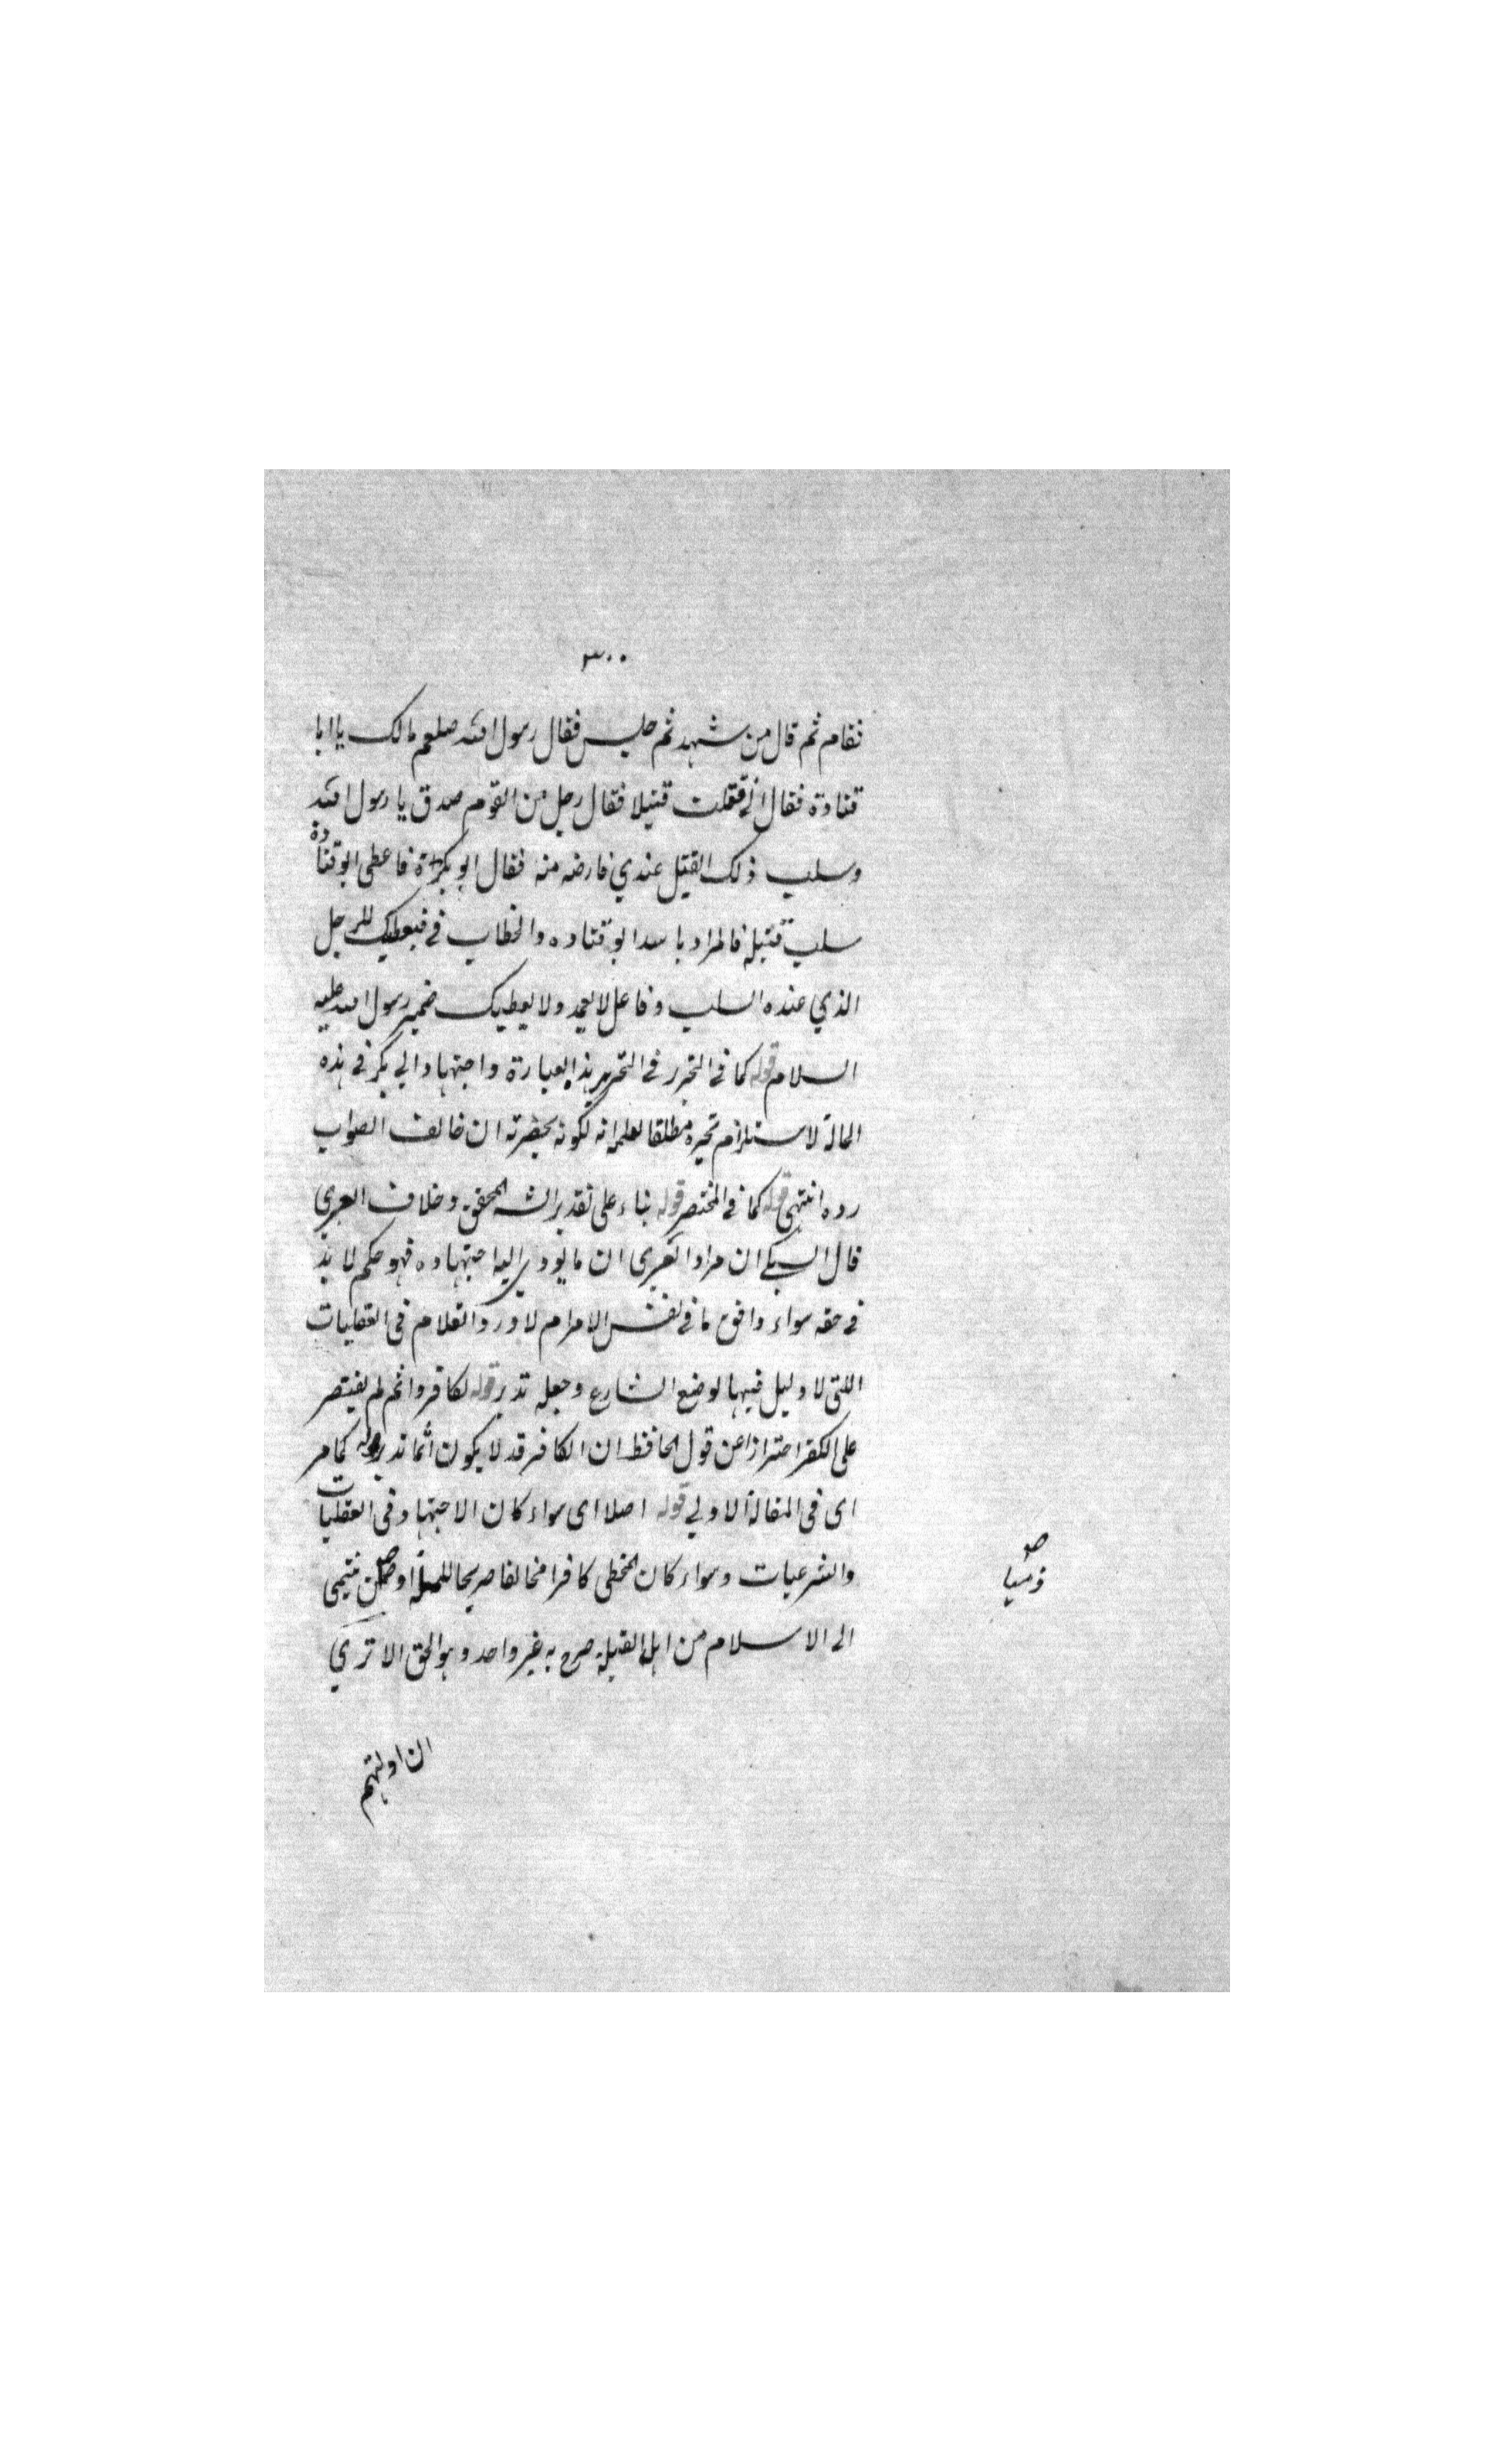 ٣٠٠
فقام ثم قال من شهد ثم جلس فقال رسول الله صلعم مالك يا ابا
قتادة فقال اني قتلت قتيلا فقال رجل من القوم صدق يا رسول الله
وسلب ذلك القتيل عندي فارضه منه فقال ابو بكرة فاعطى ابو قتادة
سلب قتيله فالمراد باسد ابو قتاده والخطاب في فيعطيك للرجل
الذي عنده السلب وفاعل لا يعمد ولا يعطيك ضمير رسول الله عليه
السلام قوله كما في التحرير في التحرير بهذه العبارة واجتهاد ابي بكر في هذه
الحالة لا يستلزم تخيره مطلقا لعلمه انه لكونه بحضرته ان خالف الصواب
رده انتهى قوله كما في المختصر قوله بناء على تقدير الش المحقق وخلاف العنبري
قال السبكي ان مراد العنبري ان ما يودي اليه اجتهاده فهو حكم لا بد
في حقه سواء وافق ما في نفس الامر ام لا ورد الكلام في العقليات
اللتي لا دليل فيها لوضع الشارع وجعله تدبر قوله لكافر واثم لم يقتصر
على الكفر احترازا عن قول الحافظ ان الكافر قد لا يكون آثما تدبر قوله كما مر
اى في المقالة الاولي قوله اصلا اى سواء كان الاجتهاد في العقليات
والشرعيات وسواء كان المخطى كافرا مخالفا صريحا للملة او ممن ينتمى
الى الاسلام من اهل القبلة صرح به غير واحد وهو الحق الا ترى
ان ادلتهم